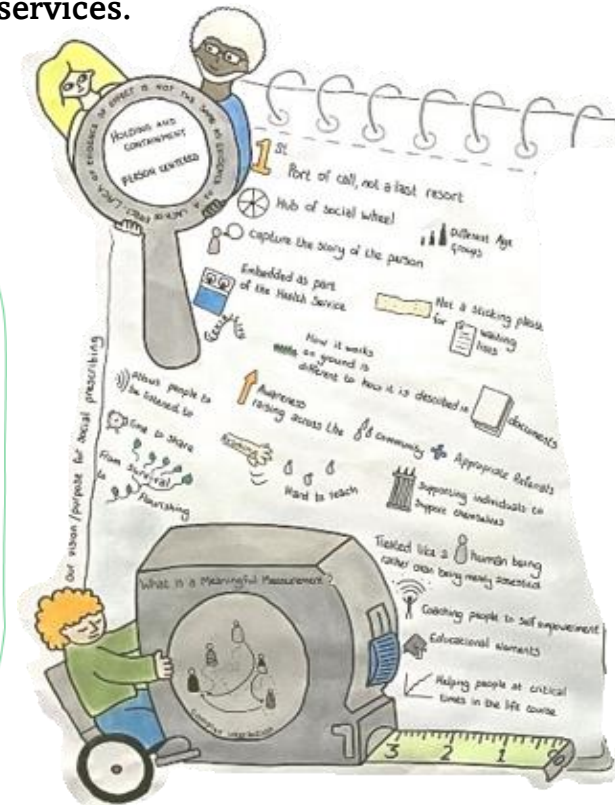 services.
LACK OF EVIDENCE OF EFFECT IS NOT THE SAME AS EVIDENCE OF A LACK OF EFFECT
HOLDING AND
CONTAINMENT
PERSON CENTERED
1st
Port of call, not a last resort
Hub of social wheel
Different Age
groups
Capture the story of the person
Embedded as part
of the Health Service
Not a sticking plaster
for waiting
lists
How it works
on ground is
different to how it is described in
documents
our vision/purpose for social prescribing
allows people to
be listened to
time to share
From survival
to
flourishing
Awareness
raising across the
community
Appropriate Referrals
Hard to reach
Supporting individuals to
support themselves
Treated like a human being
rather than being merely assessed
Coaching people to self empowerment
Educational elements
Helping people at critical
times in the life course
What is a Meaningful Measurement?
Complex interaction
3 2 1